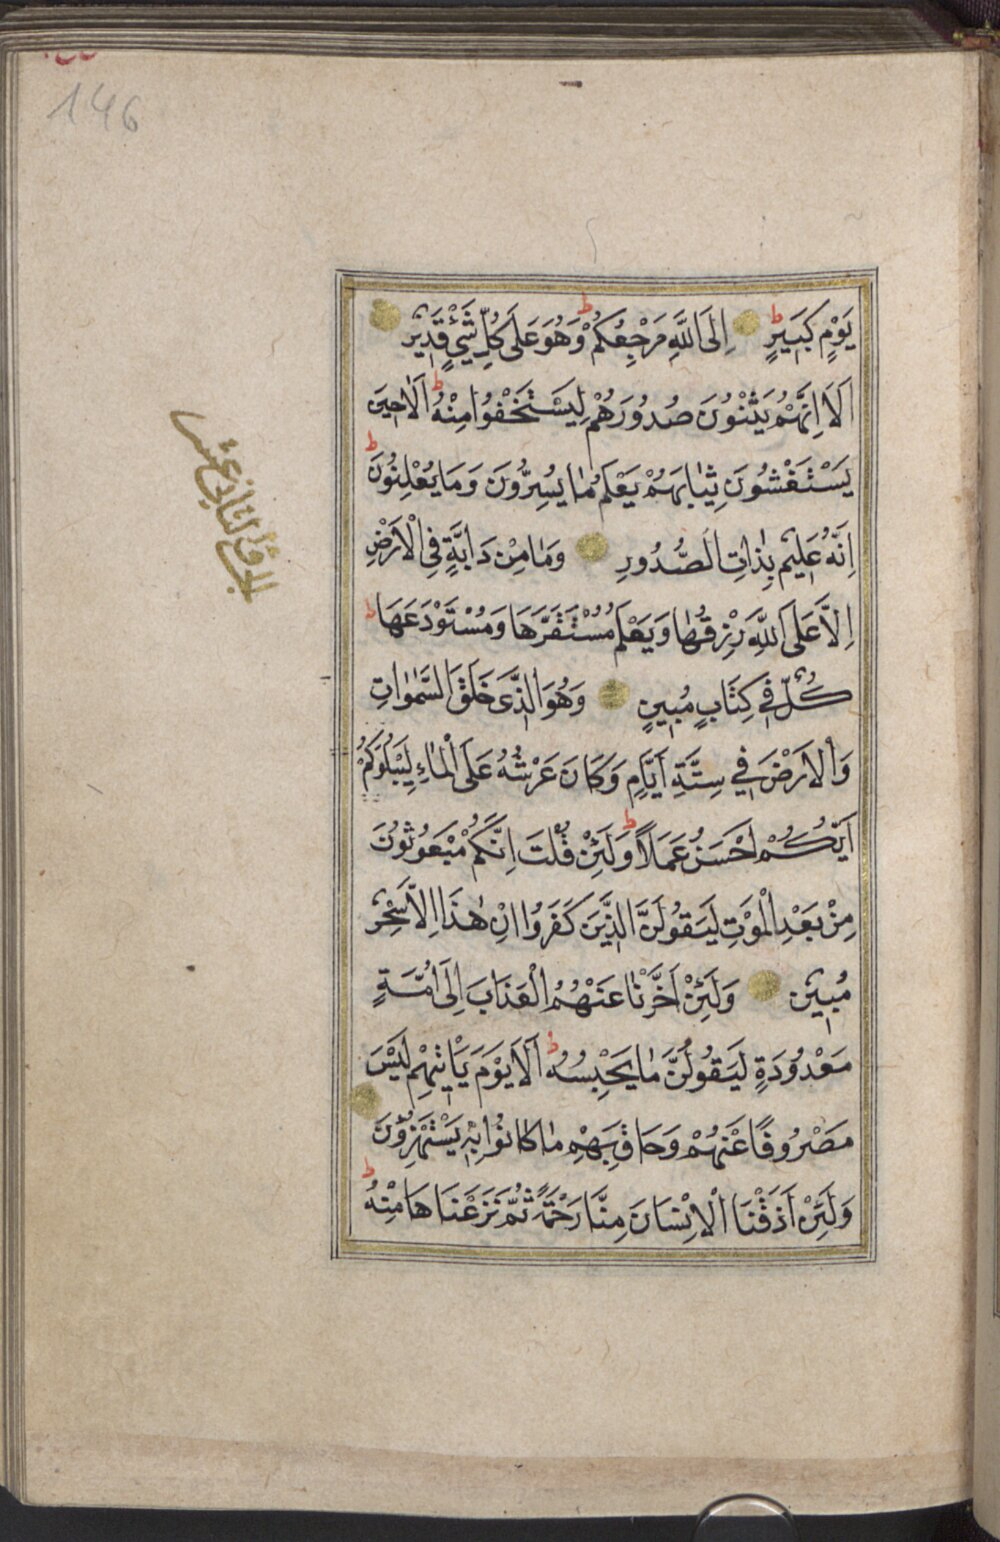 146
يَوْمٍ كَبِيرٍ ط اِلَى اللَّهِ مَرْجِعُكُمْ ط وَهُوَ عَلَى كُلِّ شَيْءٍ قَدِيرٌ
اَلَا اِنَّهُمْ يَثْنُونَ صُدُورَهُمْ لِيَسْتَخْفُوا مِنْهُ ط اَلَا حِينَ
يَسْتَغْشُونَ ثِيَابَهُمْ يَعْلَمُ مَا يُسِرُّونَ وَمَا يُعْلِنُونَ ط
اِنَّهُ عَلِيمٌ بِذَاتِ الصُّدُورِ وَمَا مِنْ دَابَّةٍ فِي الْاَرْضِ
اِلَّا عَلَى اللَّهِ رِزْقُهَا وَيَعْلَمُ مُسْتَقَرَّهَا وَمُسْتَوْدَعَهَا ط
كُلٌّ فِي كِتَابٍ مُبِينٍ وَهُوَ الَّذِي خَلَقَ السَّمٰوَاتِ
وَالْاَرْضَ فِي سِتَّةِ اَيَّامٍ وَكَانَ عَرْشُهُ عَلَى الْمَاءِ لِيَبْلُوَكُمْ
اَيُّكُمْ اَحْسَنُ عَمَلًا ط وَلَئِنْ قُلْتَ اِنَّكُمْ مَبْعُوثُونَ
مِنْ بَعْدِ الْمَوْتِ لَيَقُولَنَّ الَّذِينَ كَفَرُوا اِنْ هٰذَا اِلَّا سِحْرٌ
مُبِينٌ وَلَئِنْ اَخَّرْنَا عَنْهُمُ الْعَذَابَ اِلَى اُمَّةٍ
مَعْدُودَةٍ لَيَقُولُنَّ مَا يَحْبِسُهُ ط اَلَا يَوْمَ يَأْتِيهِمْ لَيْسَ
مَصْرُوفًا عَنْهُمْ وَحَاقَ بِهِمْ مَا كَانُوا بِهِ يَسْتَهْزِؤُنَ
وَلَئِنْ اَذَقْنَا الْاِنْسَانَ مِنَّا رَحْمَةً ثُمَّ نَزَعْنَاهَا مِنْهُ ط
الجزؤ الثانى عشر